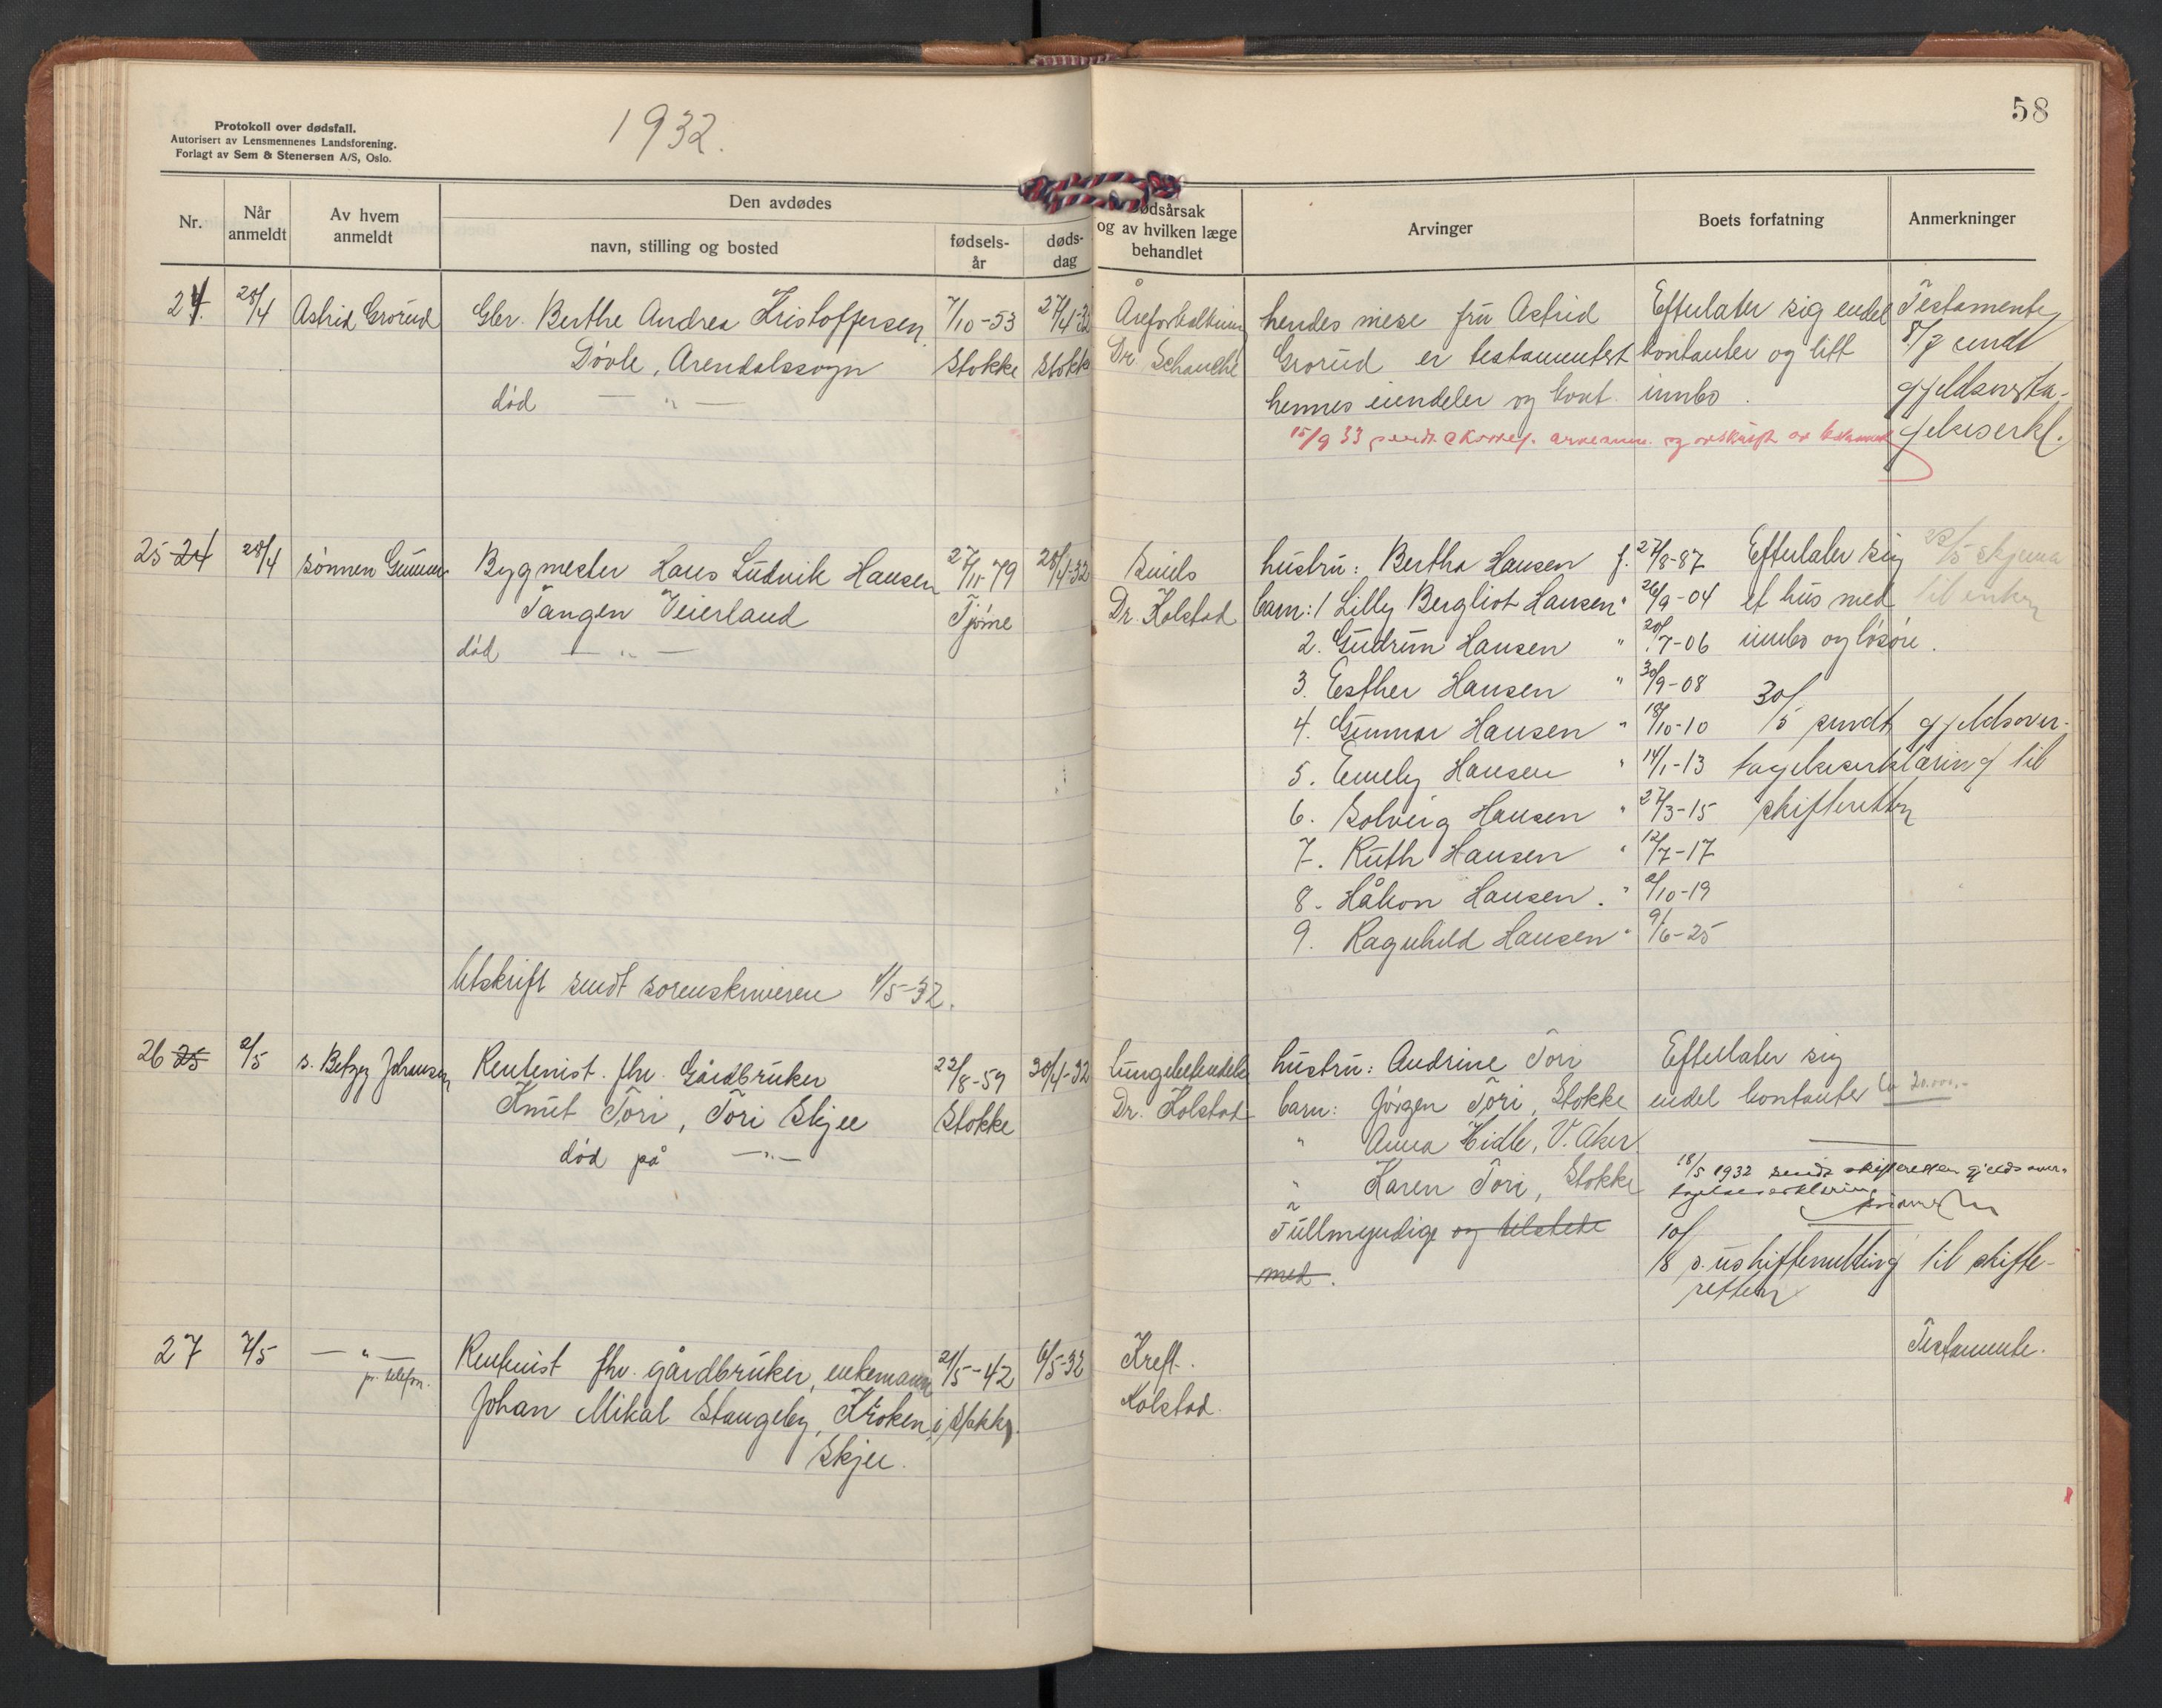 58
Protokoll over dødsfall.
Autorisert av Lensmennenes Landsforening.
Forlagt av Sem & Stenersen A/S, Oslo.
1932.
Nr.
Når anmeldt
Av hvem anmeldt
Den avdødes
navn, stilling og bosted
fødsels-år
døds-dag
ødsårsak
og av hvilken læge
behandlet
Arvinger
Boets forfatning
Anmerkninger
24. 28/4 Astrid Grorud Gbr. Berthe Andrea Kristoffersen 7/10-53 27/4-32 Åreforkalkning hendes niese fru Astrid Efterlater sig endel Testamente
Døvle, Arendalssogn Stokke Stokke Dr. Schanche Grorud er testamentert kontanter og litt 8/7 sendt
død — " — hennes eiendeler og kont. innbo. gjeldsoverta-
15/9 33 sendt skorref. arveanm. og avskrift av testament gelseserkl.
25 24 28/4 sønnen Gunnar Bygmester Hans Ludvik Hansen 27/11-79 28/4-32 Dr. Kolstad hustru: Bertha Hansen f. 27/8-87 Efterlater sig 23/5 skjema
Tangen Veierland Tjøme barn: 1 Lilly Bergliot Hansen " 26/9-04 et hus med til enken
død — " — 2. Gudrun Hansen " 20/7-06 innbo og løsøre.
3. Esther Hansen " 30/9-08
4. Gunnar Hansen " 18/10-10 30/5 sendt gjeldsover-
5. Emely Hansen " 14/1-13 tagelseserklæring til
6. Solveig Hansen " 27/3-15 skifteretten
7. Ruth Hansen " 12/7-17
8. Håkon Hansen. " 2/10-19
9. Ragnhild Hansen " 9/6-25
Utskrift sendt sorenskriveren 4/5-32.
26 25 2/5 s. Betzy Johansen Rentenist. fhv. Gårdbruker 22/8-59 30/4-32 Lungebetendelse hustru: Andrine Tori Efterlater sig
Knut Tori, Tori Skjee Stokke Dr. Kolstad barn: Jørgen Tori, Stokke endel kontanter ca 20.000,-
død på — " — " Anna Hidle, V. Aker.
" Karen Tori, Stokke 18/5 1932 sendt skifteretten gjeldsover-
tagelseserklæring
Fullmyndige og tilstede 10/8 s. uskiftemelding til skifte-
med. retten
27 7/5 — " — Rentenist fhv. gårdbruker, enkemann 21/5-42 6/5-32 Kreft. Testamente.
pr. telefon. Johan Mikal Stangeby, Kroken i Stokke. Kolstad.
Skjee.